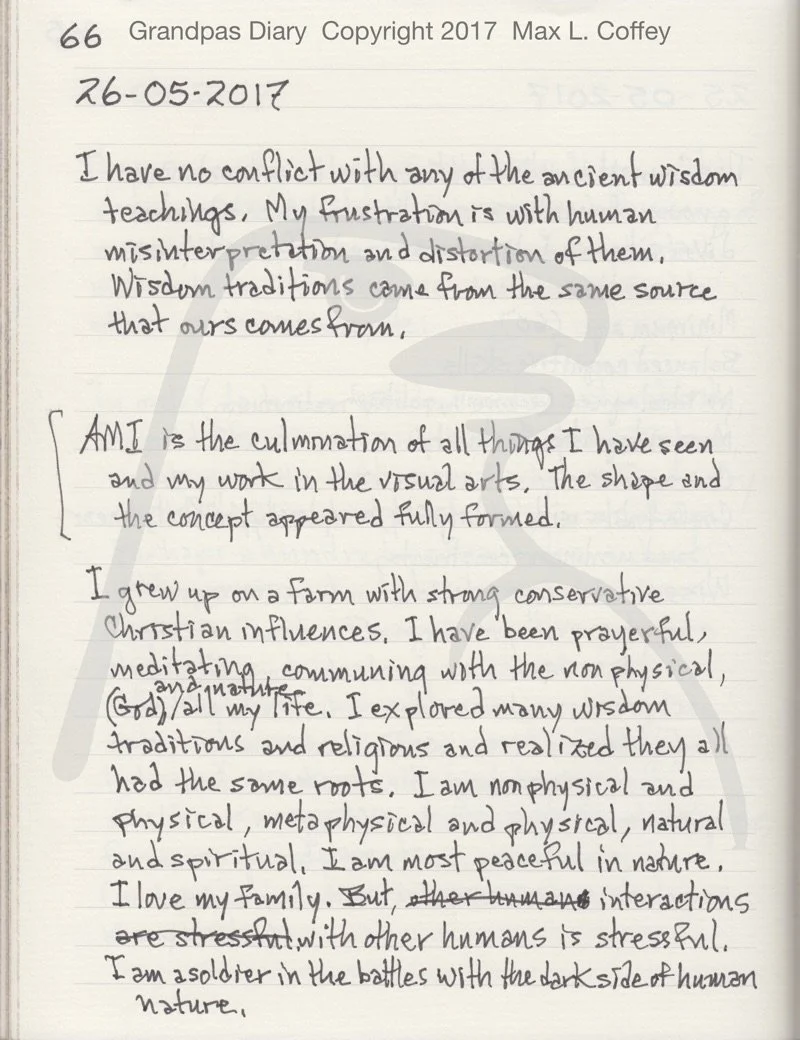 66 Grandpas Diary Copyright 2017 Max L. Coffey
26-05-2017
I have no conflict with any of the ancient wisdom
teachings. My frustration is with human
misinterpretation and distortion of them.
Wisdom traditions came from the same source
that ours comes from.
AMI is the culmination of all things I have seen
and my work in the visual arts. The shape and
the concept appeared fully formed.
I grew up on a farm with strong conservative
Christian influences. I have been prayerful,
meditating, communing with the nonphysical,
and nature
(God)/all my life. I explored many wisdom
traditions and religious and realized they all
had the same roots. I am nonphysical and
physical, metaphysical and physical, natural
and spiritual. I am most peaceful in nature.
I love my family. But, other humans interactions
are stressful, with other humans is stressful.
I am a soldier in the battles with the dark side of human
nature.